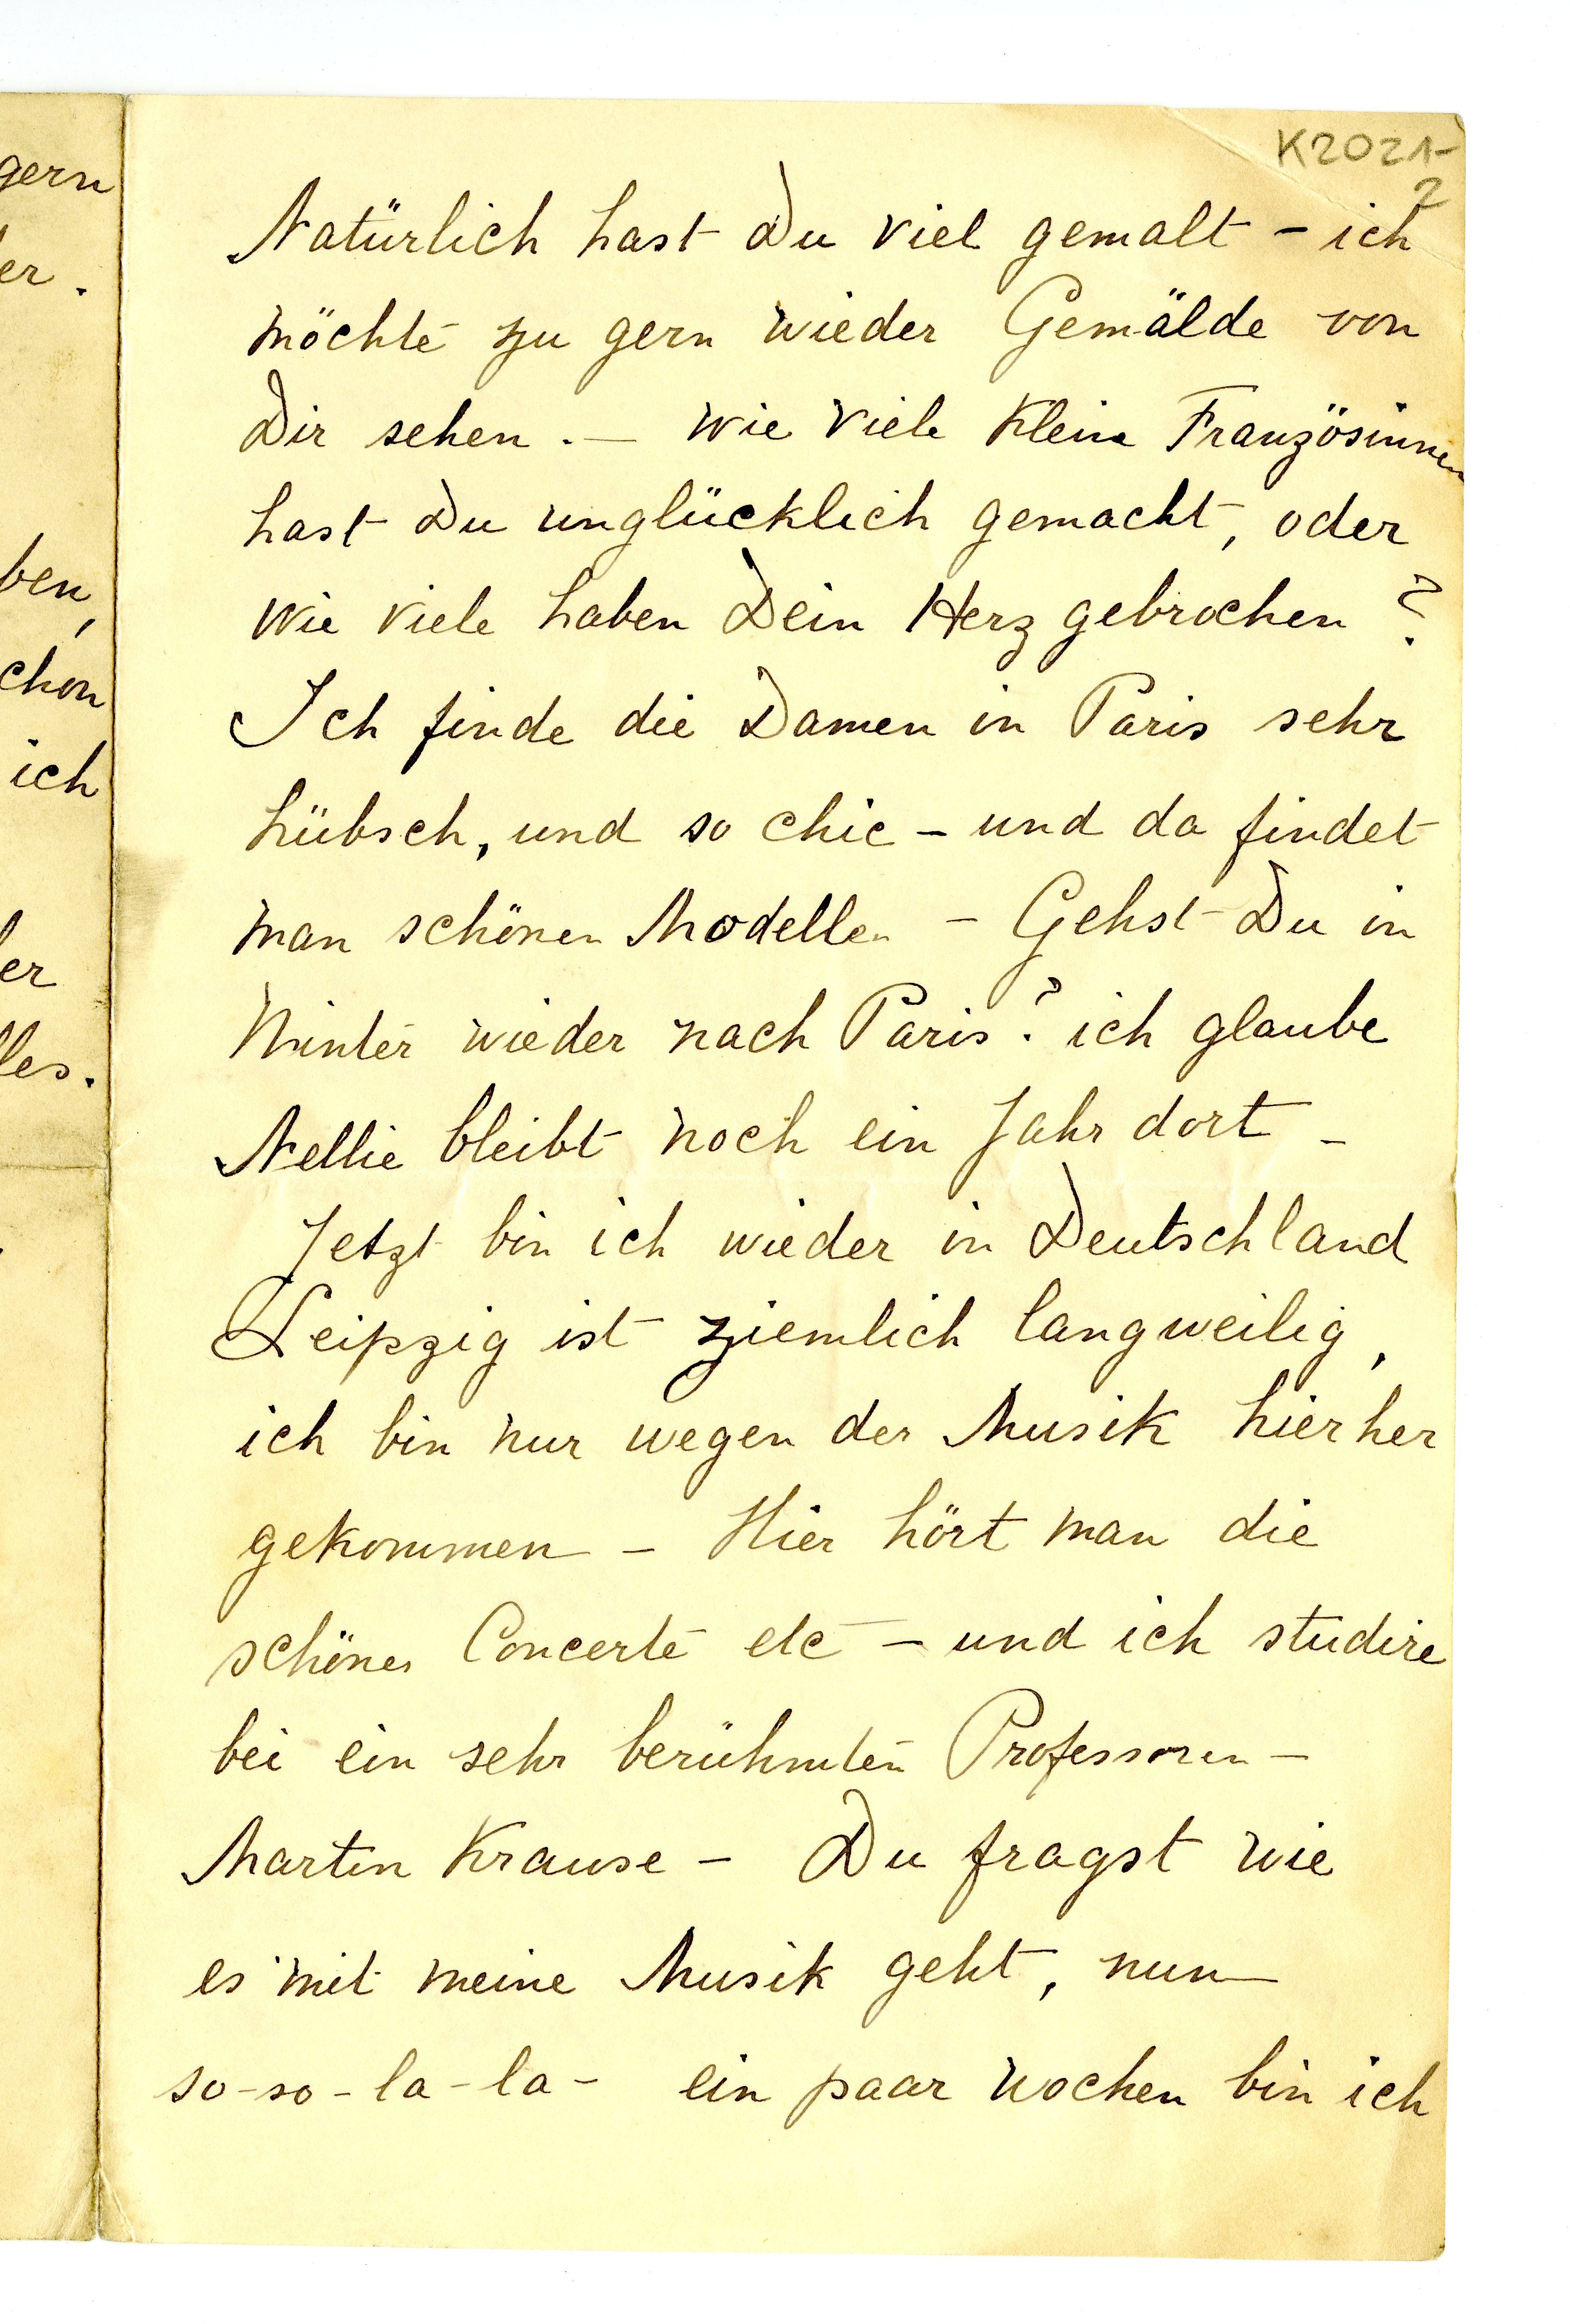 gern
er.
ben,
chon
ich
er
les.
K2021-
2
Natürlich hast Du viel gemalt - ich
möchte zu gern wieder Gemälde von
Dir sehen. — wie viele Kleine Französinnen
hast Du unglücklich gemacht, oder
wie viele haben Dein Herz gebrochen?
Ich finde die Damen in Paris sehr
hübsch, und so chic - und da findet
man schönen Modellen - Gehst Du in
Winter wieder nach Paris? ich glaube
Nellie bleibt noch ein Jahr dort -
Jetzt bin ich wieder in Deutschland
Leipzig ist ziemlich langweilig,
ich bin nur wegen der Musik hierher
gekommen - Hier hört man die
schönes Concerte etc - und ich studire
bei ein sehr berühmten Professoren -
Martin Krause - Du fragst wie
es mit meine Musik geht, nun —
so-so-la-la- ein paar wochen bin ich